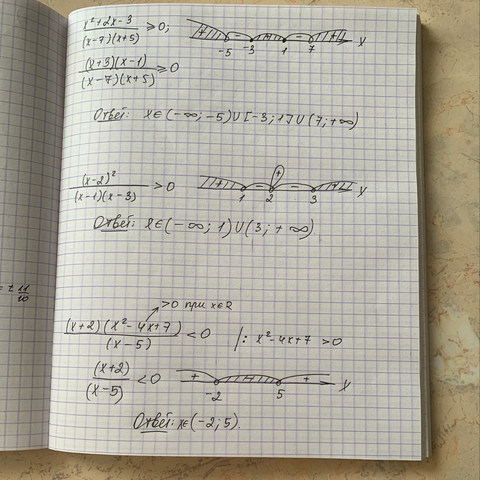 (x²+2x-3)/((x-7)(x+5)) ≥ 0; + - + - + x
-5 -3 1 7
((x+3)(x-1))/((x-7)(x+5)) ≥ 0
Ответ: x∈(-∞;-5)∪[-3;1]∪(7;+∞)
(x-2)²/((x-1)(x-3)) > 0 + - + - + x
1 2 3
Ответ: x∈(-∞;1)∪(3;+∞).
= ± 11/10
>0 при x∈R
((x+2)(x²-4x+7))/(x-5) < 0 |: x²-4x+7 >0
(x+2)/(x-5) < 0 + - + x
-2 5
Ответ: x∈(-2;5).